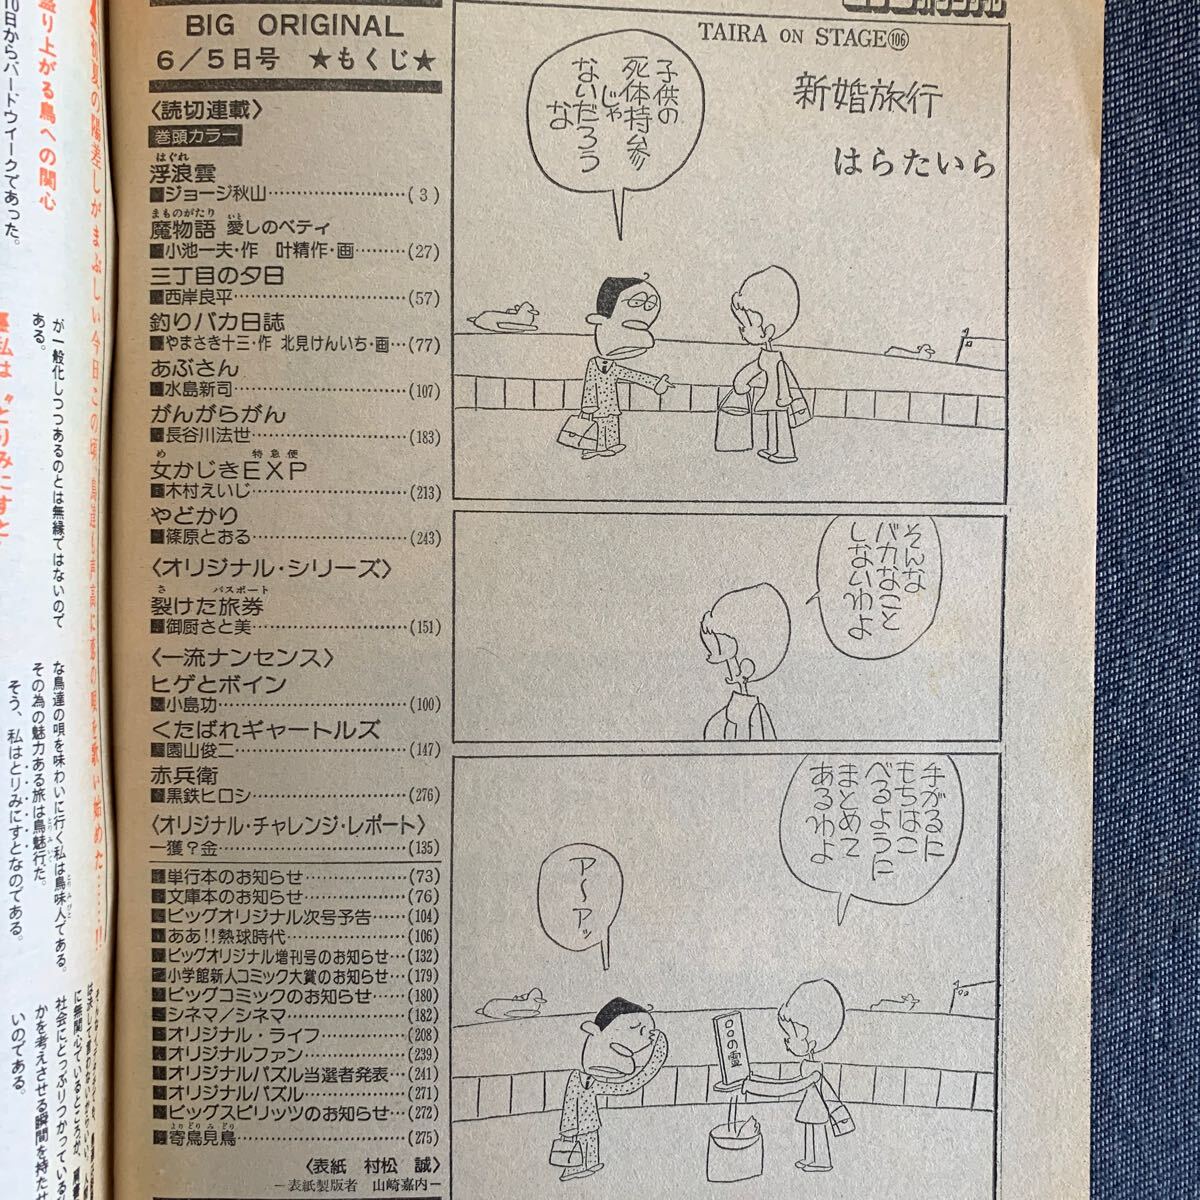 BIG ORIGINAL
6／5日号 ★もくじ★
〈読切連載〉
巻頭カラー
はぐれ
浮浪雲
■ジョージ秋山………………(3)
まものがたり いと
魔物語 愛しのベティ
■小池一夫・作 叶精作・画………(27)
三丁目の夕日
■西岸良平………………(57)
釣りバカ日誌
■やまさき十三・作 北見けんいち・画…(77)
あぶさん
■水島新司………………(107)
がんがらがん
■長谷川法世………………(183)
め 特急便
女かじきEXP
■木村えいじ………………(213)
やどかり
■篠原とおる………………(243)
〈オリジナル・シリーズ〉
さ パスポート
裂けた旅券
■御厨さと美………………(151)
〈一流ナンセンス〉
ヒゲとボイン
■小島功………………(100)
くたばれギャートルズ
■園山俊二………………(147)
赤兵衛
■黒鉄ヒロシ………………(276)
〈オリジナル・チャレンジ・レポート〉
一獲？金………………(135)
■単行本のお知らせ…………(73)
■文庫本のお知らせ…………(76)
■ビッグオリジナル次号予告……(104)
■ああ!!熱球時代…………(106)
■ビッグオリジナル増刊号のお知らせ…(132)
■小学館新人コミック大賞のお知らせ…(179)
■ビッグコミックのお知らせ……(180)
■シネマ／シネマ…………(182)
■オリジナル・ライフ…………(208)
■オリジナルファン…………(239)
■オリジナルパズル当選者発表…(241)
■オリジナルパズル…………(271)
■ビッグスピリッツのお知らせ…(272)
よりどりみどり
■寄鳥見鳥………………(275)
〈表紙 村松 誠〉
—表紙製版者 山崎嘉内—
TAIRA ON STAGE(106)
新婚旅行
はらたいら
子供の
死体持参
じゃ
ないだろう
な
そんな
バカなこと
しないわよ
手がるに
もちはこ
べるように
まとめて
あるわよ
ア〜アッ
○○の霊
盛り上がる鳥への関心
10日からバードウイークであった。
が一般化しつつあるのとは無縁ではないので
ある。
な鳥達の唄を味わいに行く私は鳥味人である。
その為の魅力ある旅は鳥魅行だ。
そう、私はとりみにすとなのである。
社会にとっぷりつかっている
かを考えさせる瞬間を持たせ
いのである。